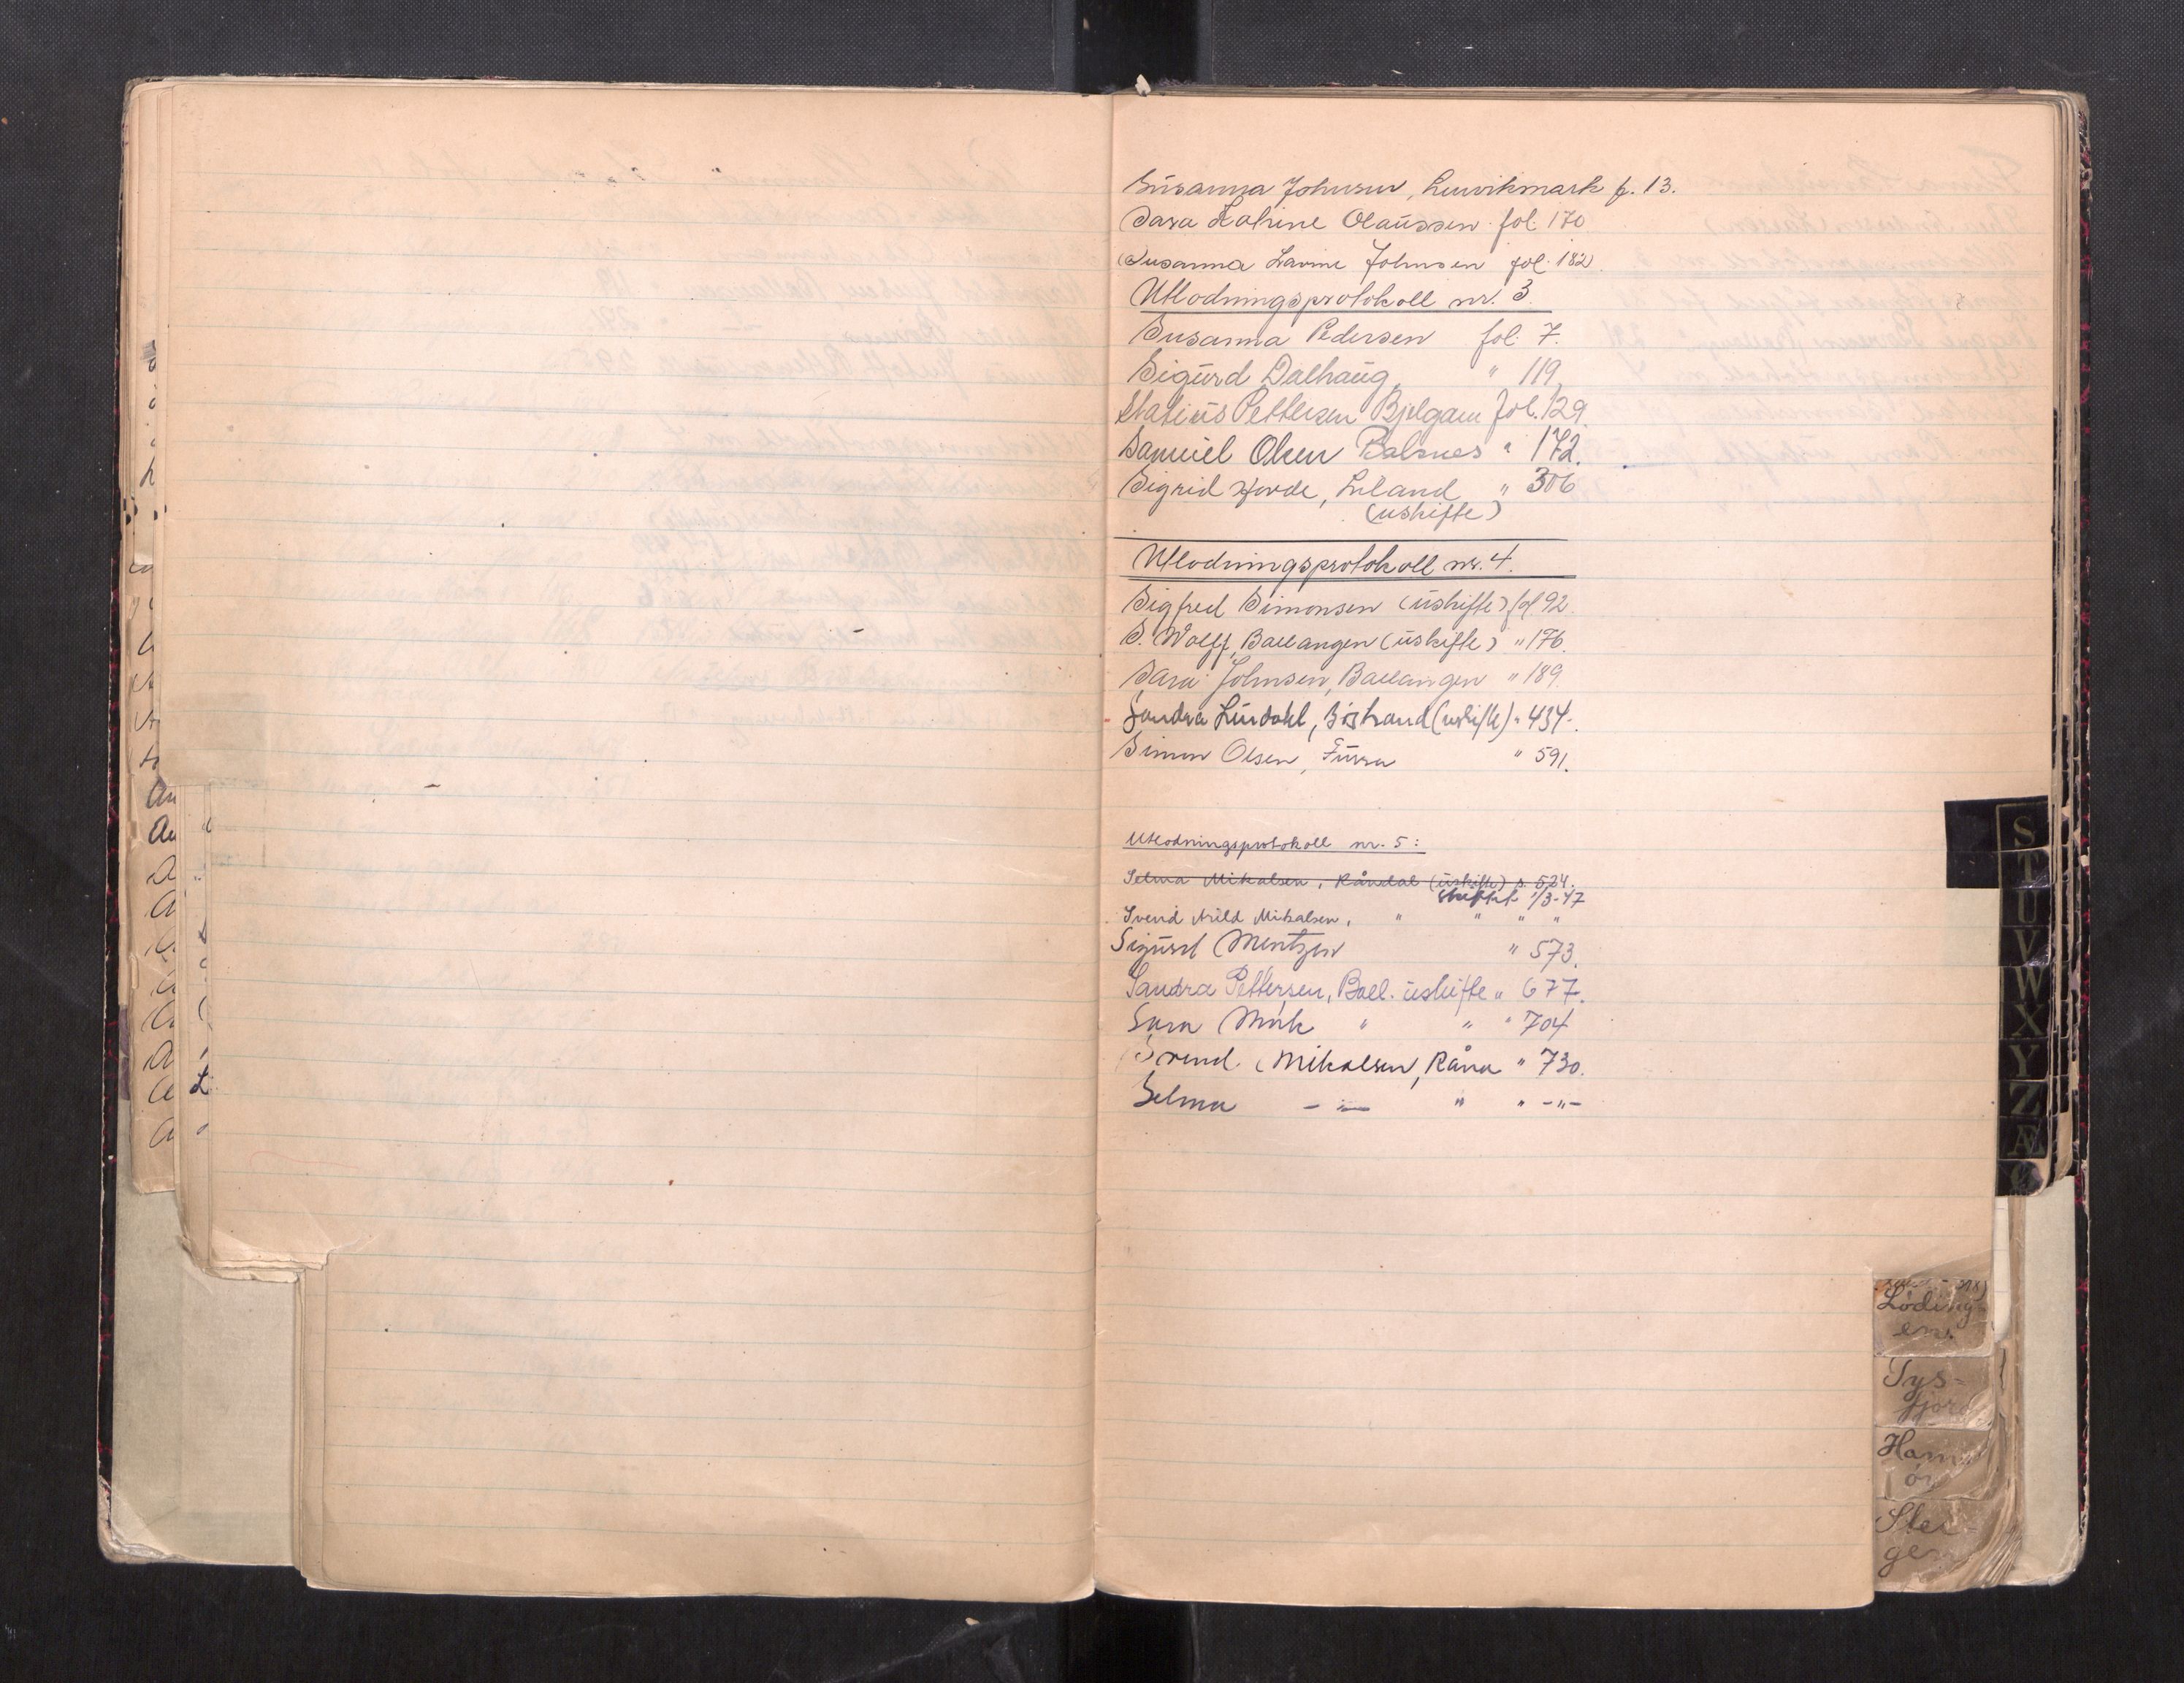 Susanna Johnsen, Lenvikmark p. 13.
Sara Katrine Olaussen fol. 170
Susanna Lavine Johnsen fol. 182
Utlodningsprotokoll nr. 3.
Susanna Pedersen fol. 7.
Sigurd Dalhaug, " 119
Statius Pettersen Bjelgam fol. 129.
Samuel Olsen Balsnes " 172.
Sigrid Horde, Leland " 306
(uskifte)
Utlodningsprotokoll nr. 4.
Sigfred Simonsen (uskifte) fol 92.
S. Wolff, Ballangen (uskifte) " 176.
Sara Johnsen, Ballangen " 189.
Sandra Lindahl, (uskifte) " 434.
Simon Olsen, Furra " 591.
Utlodningsprotokoll nr. 5:
Selma Mikalsen, Råndal (uskifte) s. 524.
skiftet 1/3-47
Svend Arild Mikalsen, " " " "
Sigurd Mentzen " 573.
Sandra Pettersen, Ball. uskifte " 677.
Sara Mork " " " 704
Svend Mikalsen, Råna " 730.
Selma - " - " " - " -
S
T
U
V
W
X
Y
Z
Æ
Ø
Löding-
en.
Tys-
fjord
Ham
ör
Stei-
gen